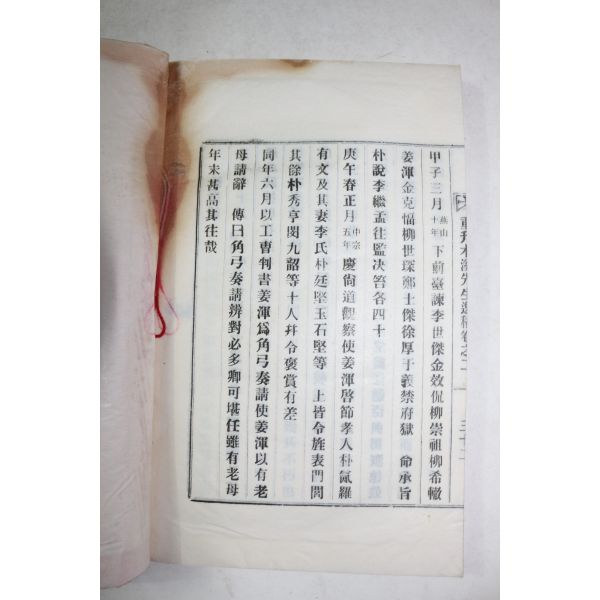 甲子三月燕山十年下前臺諫李世傑金效侃柳崇祖柳希轍
姜渾金克愊柳世琛鄭士傑徐厚于義禁府獄 命承旨
朴說李繼孟往監决笞各四十
庚午春正月中宗五年慶尙道觀察使姜渾啓節孝人朴氤羅
有文及其妻李氏朴廷堅玉石堅等 上皆令旌表門閭
其餘朴秀亨閔九韶等十人幷令褒賞有差
同年六月以工曹判書姜渾爲角弓奏請使姜渾以有老
母請辭 傳曰角弓奏請辨對必多卿可堪任雖有老母
年未甚高其往哉
先生逸稿卷之二 三十二